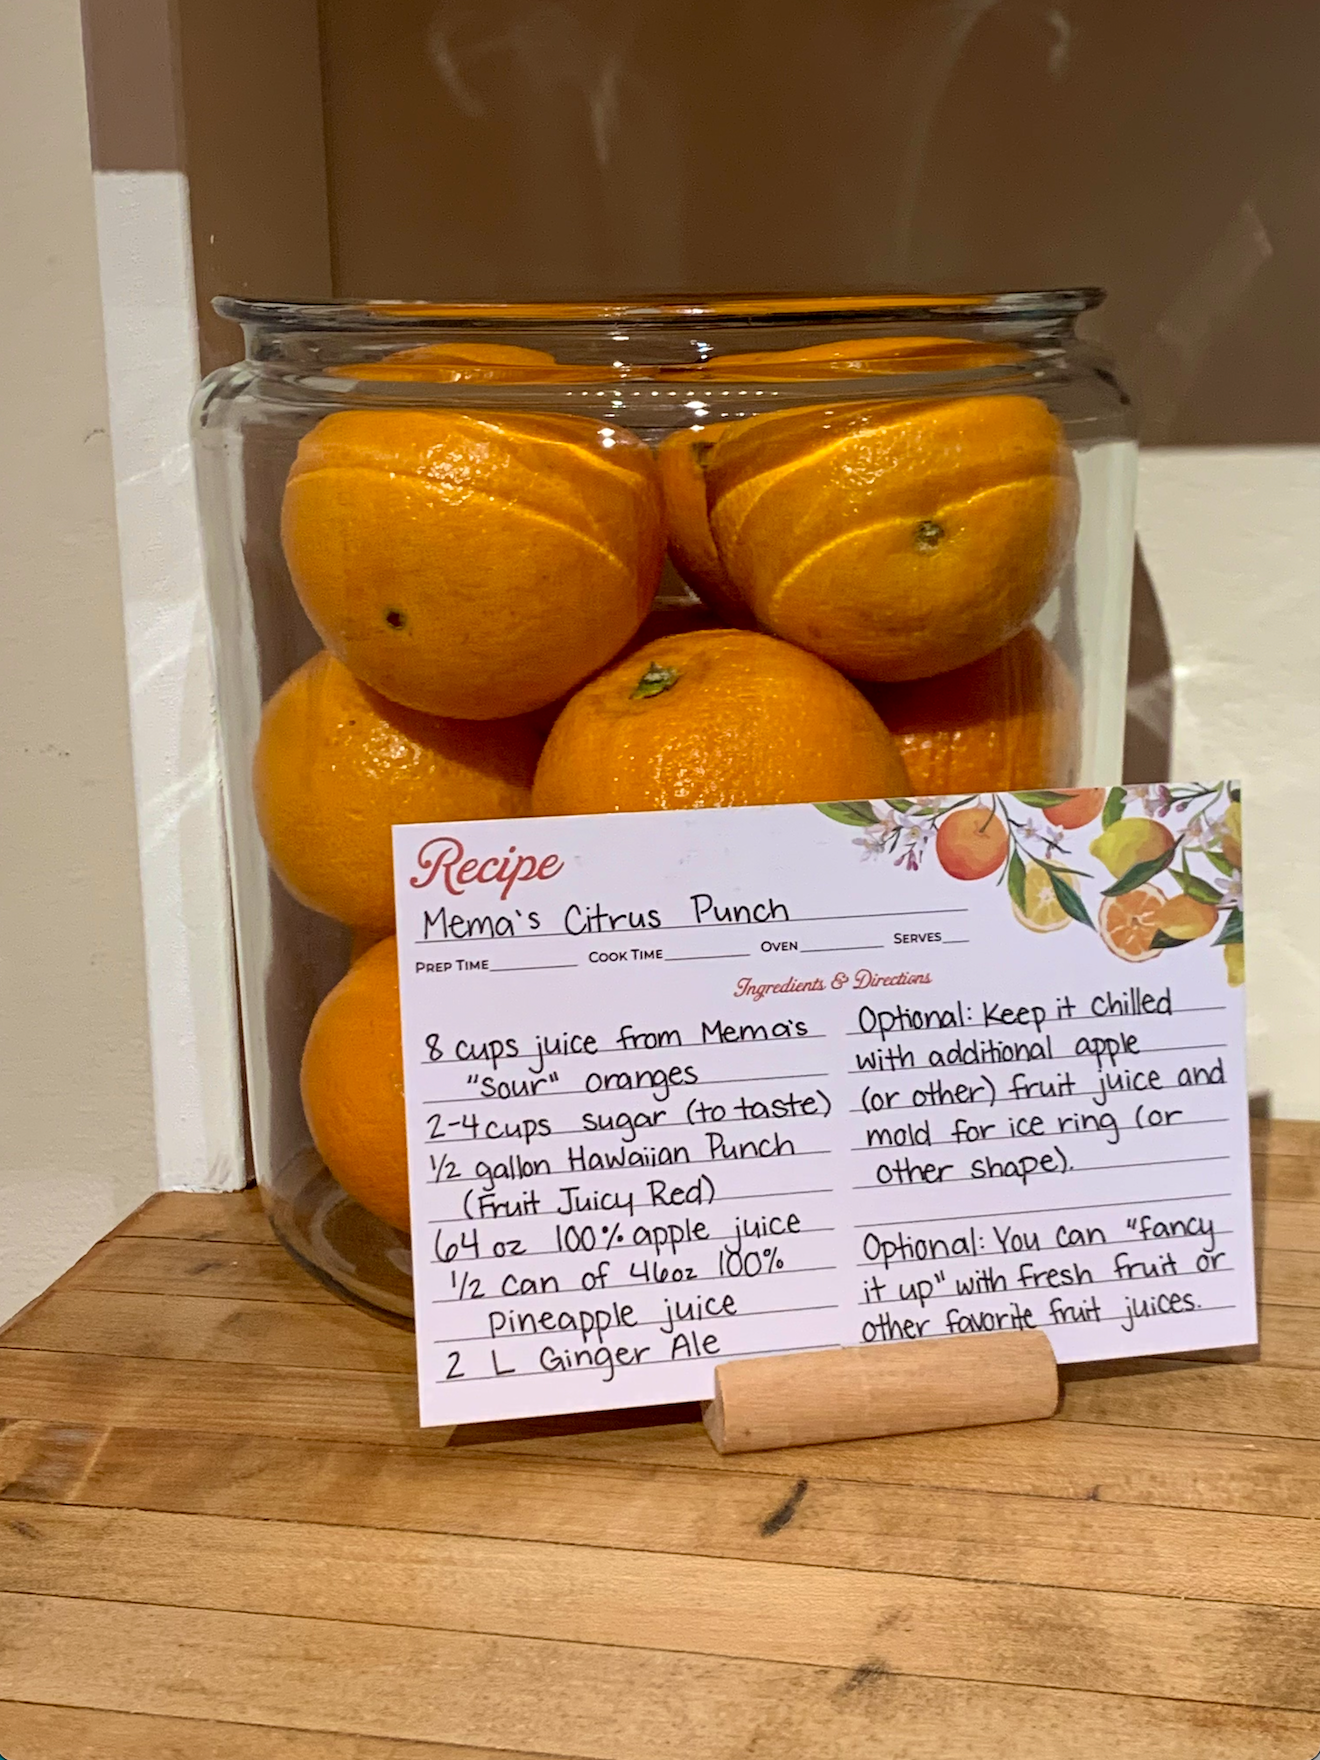 Recipe
Mema's Citrus Punch
PREP TIME COOK TIME OVEN SERVES
Ingredients & Directions
8 cups juice from Mema's
"Sour" oranges
2-4 cups sugar (to taste)
1/2 gallon Hawaiian Punch
(Fruit Juicy Red)
64 oz 100% apple juice
1/2 can of 46oz 100%
Pineapple juice
2 L Ginger Ale
Optional: Keep it chilled
with additional apple
(or other) fruit juice and
mold for ice ring (or
other shape).
Optional: You can "fancy
it up" with fresh fruit or
other favorite fruit juices.